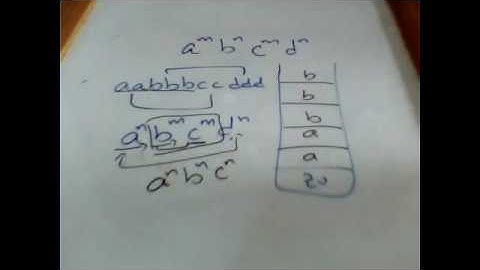 aᵐ bⁿ cᵐ dⁿ
aabbbccddd
aⁿ bᵐ cᵐ dⁿ
aⁿ bⁿ cⁿ
b
b
b
a
a
z₀